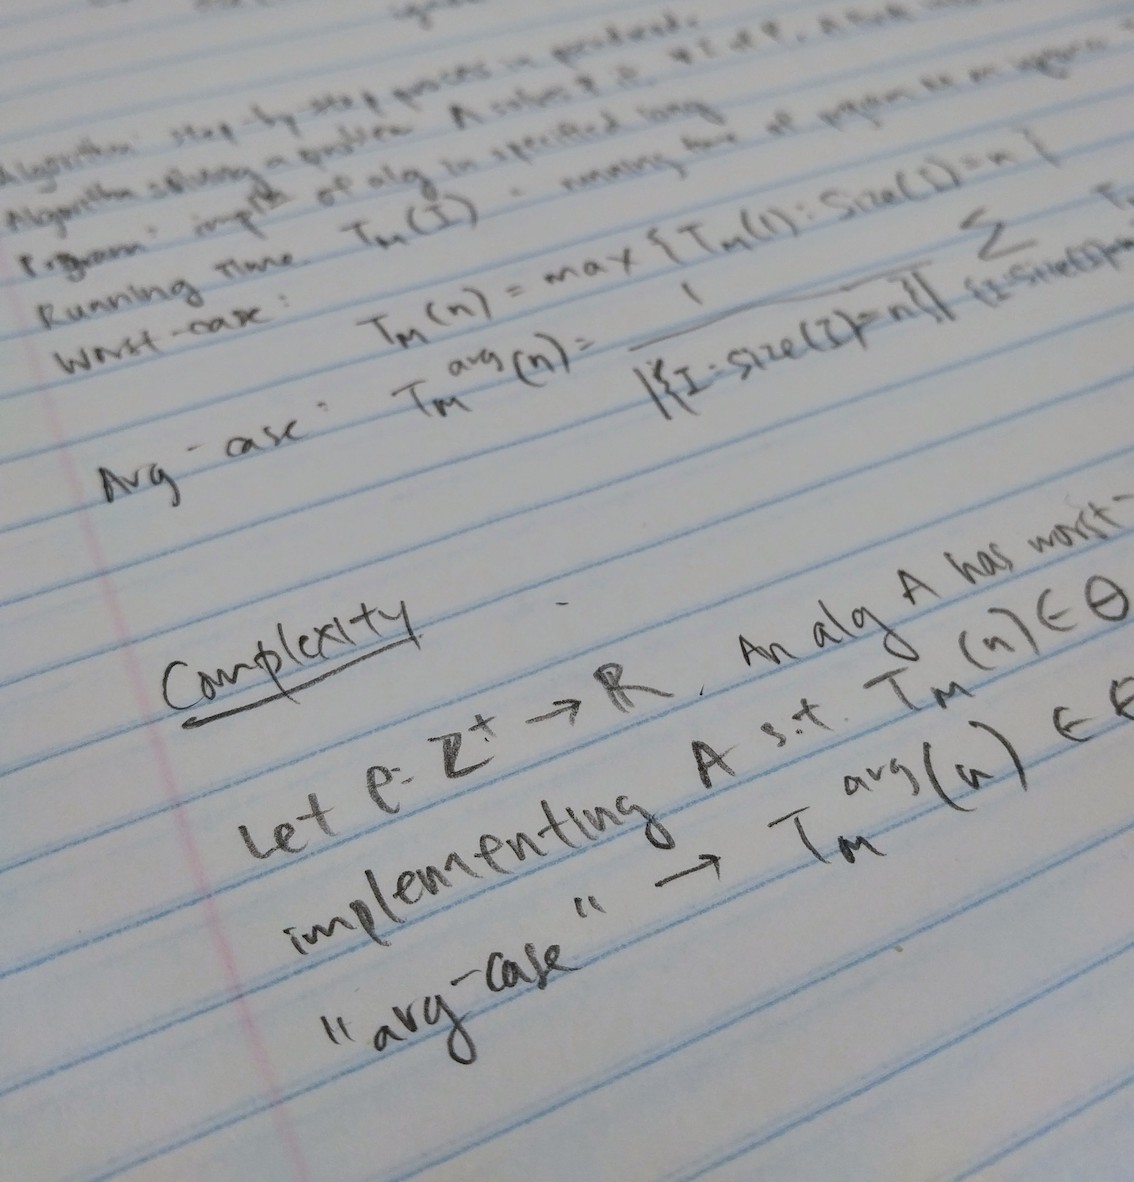 Algorithm: step-by-step process
Algorithm solving a problem A solves P if
Program: impl of alg in specified lang
Running Time T_M(I) = running time of program M on
Worst-case: T_M(n) = max { T_M(I) : Size(I) = n }
Avg-case: T_M^avg(n) = 1 / |{I: Size(I) = n}| Σ {I: Size(I)
Complexity
Let f: Z⁺ → R. An alg A has worst-
implementing A s.t. T_M(n) ∈ Θ
"avg-case" → T_M^avg(n) ∈